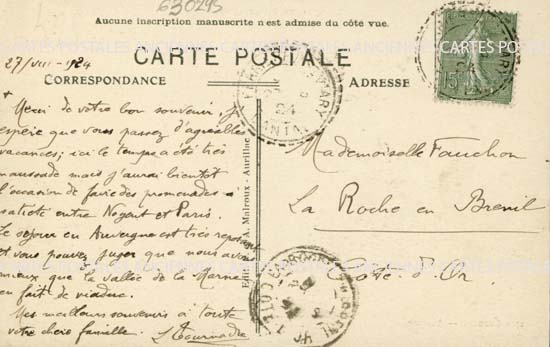 630295
Aucune inscription manuscrite n'est admise du côté vue.
CARTE POSTALE
CORRESPONDANCE
ADRESSE
27/VIII-1924
Merci de votre bon souvenir. J'
espère que vous passez d'agréables
vacances; ici le temps a été très
maussade mais j'aurai bientôt
l'occasion de faire des promenades à
satiété entre Nogent et Paris.
Le séjour en Auvergne est très reposant
et vous pouvez juger que nous avons
mieux que la vallée de la Marne
en fait de viaduc.
Mes meilleurs souvenirs à toute
votre chère famille.
Mademoiselle Fauchon
La Roche en Brenil
Côte-d'Or
A. Malroux - Aurillac
MARY
24
CANTAL
15
CARTES POSTALES ANCIENNES